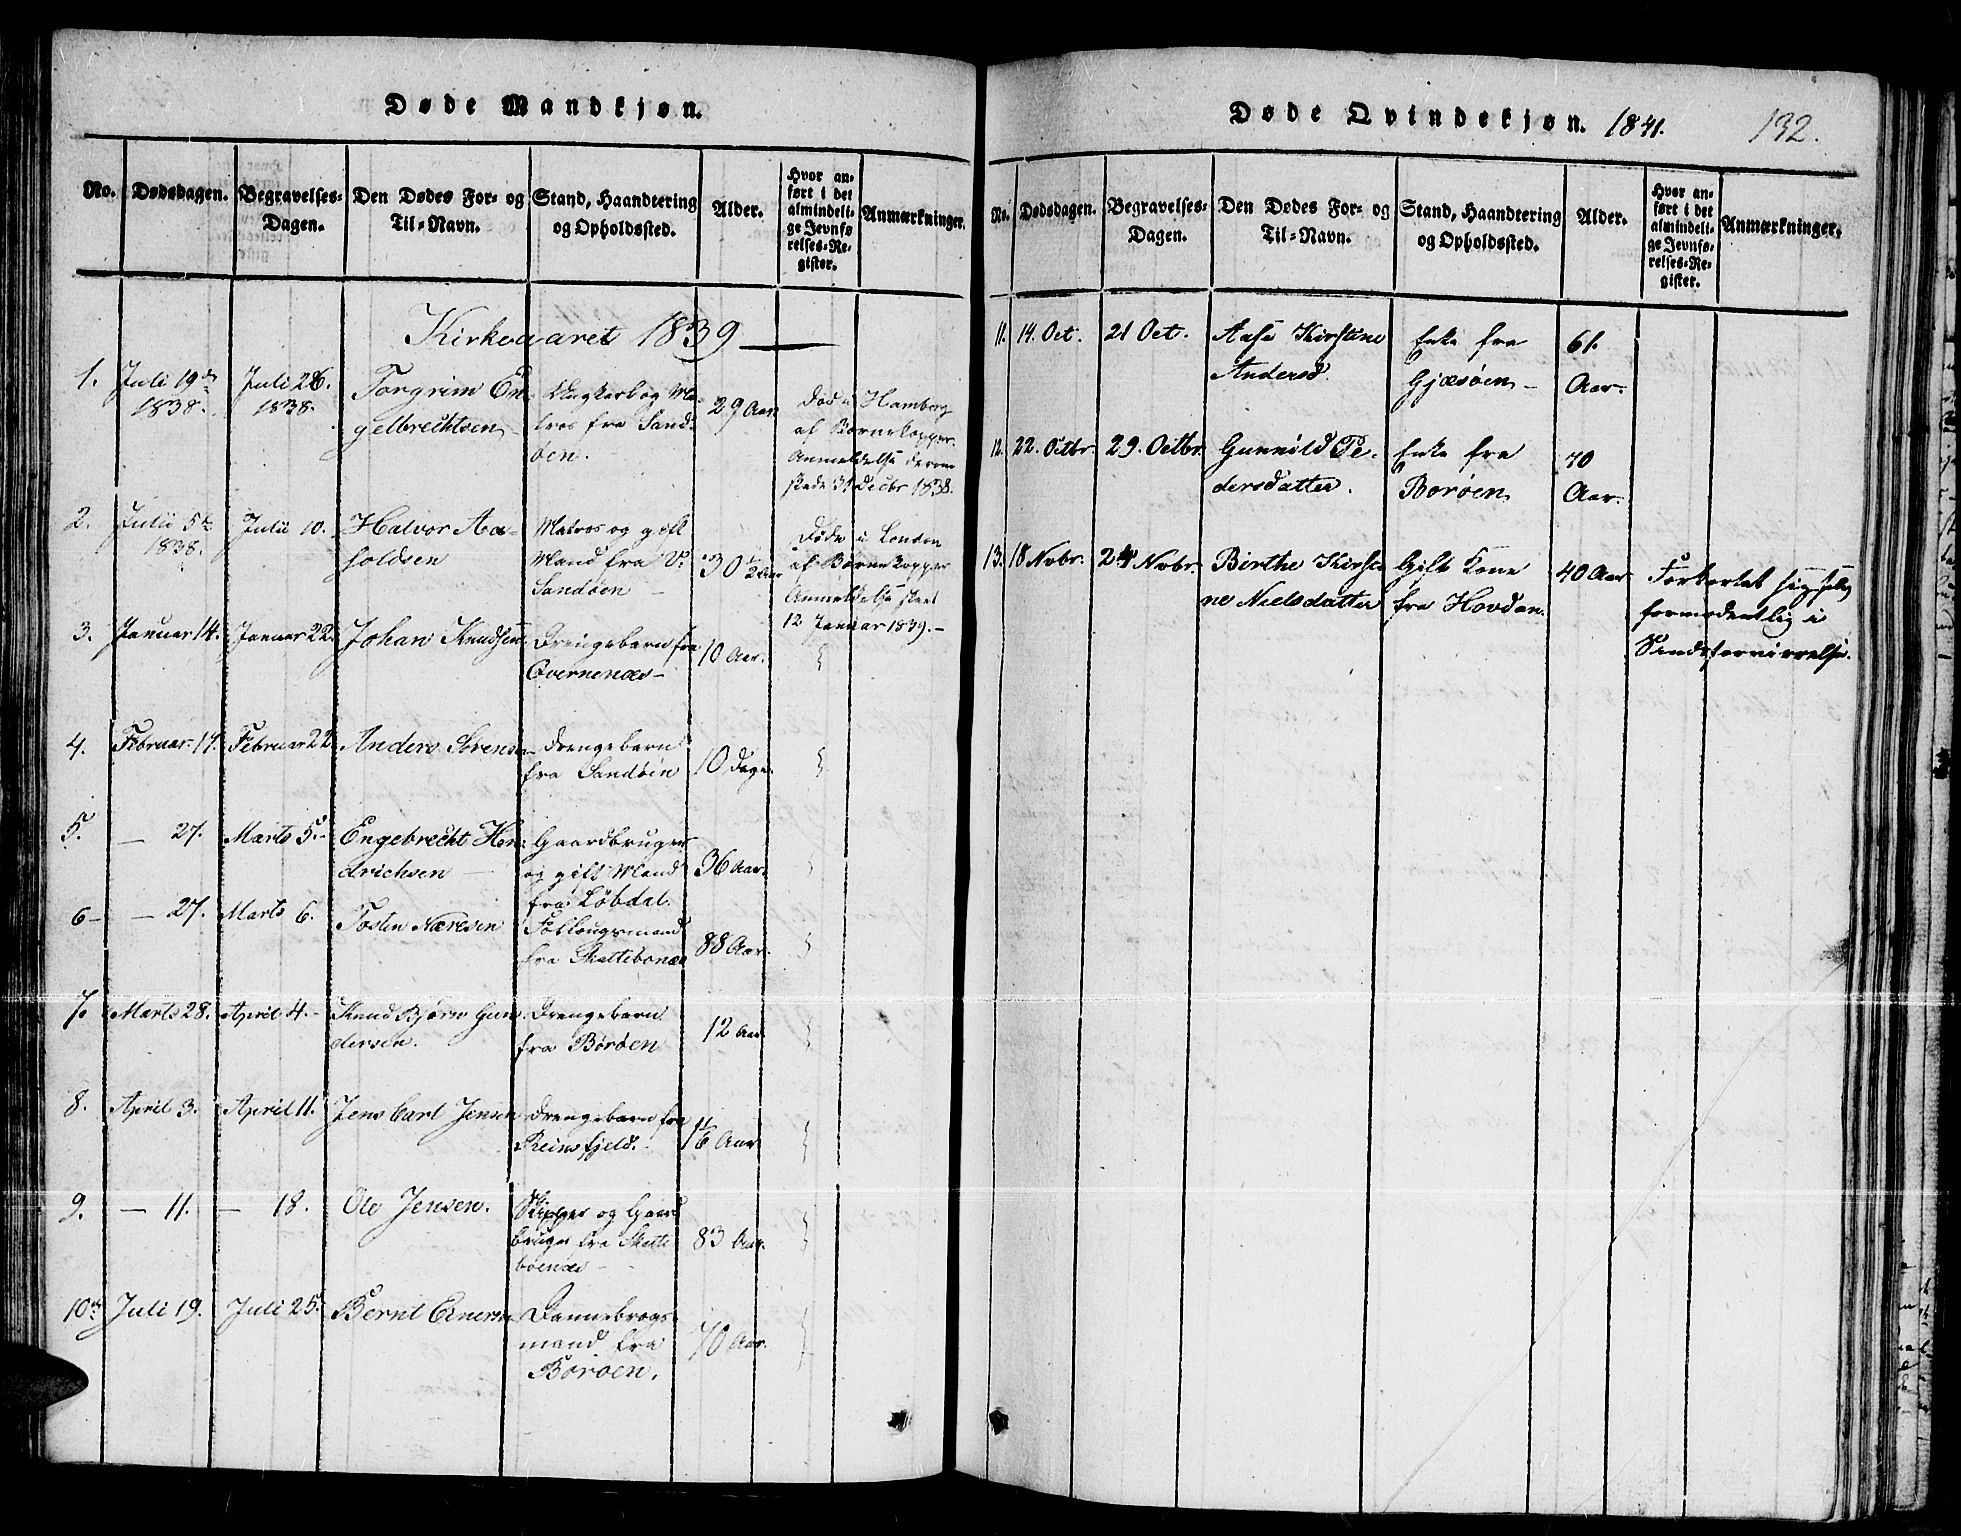 Døde Mandkjøn.
No.
Dødsdagen.
Begravelses-
Dagen.
Den Dødes For- og
Til-Navn.
Stand, Haandtering
og Opholdssted.
Alder.
Hvor an-
ført i det
almindeli-
ge Jevnfø-
relses-Re-
gister.
Anmærkninger.
Kirkeaaret 1839
1.
Juli 19de
1838.
Juli 26.
1838.
Torgrim En-
gelbrechtsen
Ungkarl og Ma-
tros fra Sand-
øen.
29 Aar
Død i Hamborg
af Børnekopper.
Anmeldelse derom
skede 31 Decbr 1838.
2.
Julii 5te
1838.
Julii 10.
Halvor Aa-
soldsen
Matros og gift
Mand fra V.
Sandøen
30 1/2 Aar
Døde i London
af Børnekopper
Anmeldelse skeet
12 Januar 1839.
3.
Januar 14.
Januar 22.
Johan Knudsen
Drengebarn fra
Qvernenæs
10 Aar.
4.
Februar 17.
Februar 22
Anders Sørensen
Drengebarn
fra Sandøen
10 Dage.
5.
— 27.
Marts 5.
Engebrecht Hen-
drichsen
Gaardbruger
og gift Mand
fra Løbdal.
36 Aar.
6
— 27.
Marts 6.
Tosten Næresen
Føllougsmand
fra Skattebonæs
88 Aar.
7.
Marts 28.
April 4.
Knud Bjørn Gun-
dersen.
Drengebarn
fra Børøen
12 Aar
8.
April 3.
April 11.
Jens Carl Jensen
Drengebarn fra
Reinsfjeld.
Aar
9.
— 11.
— 18.
Ole Jensen.
Skipper og Gaard
bruger fra Skatte
böenæs
83 Aar.
10de
Juli 19.
Juli 25.
Bernt Einersen
Dannebrogs-
mand fra
Børøen.
70 Aar.
Døde Qvindekjøn. 1841.
132.
No.
Dødsdagen.
Begravelses-
Dagen.
Den Dødes For- og
Til-Navn.
Stand, Haandtering
og Opholdssted.
Alder.
Hvor an-
ført i det
almindeli-
ge Jevnfø-
relses-Re-
gister.
Anmærkninger.
11.
14. Oct.
21 Oct.
Aase Kirstine
Andersd.
Enke fra
Gjæsøen
61.
Aar.
12.
22. Octbr.
29. Octbr.
Gunnild Pe-
dersdatter.
Enke fra
Borøen
70
Aar.
13.
18 Novbr.
24 Novbr.
Birthe Kirsti-
ne Nielsdatter
Gift Kone
fra Hovdan.
40 Aar
Forkortet sig selv
formodentlig i
Sindsforvirrelse.